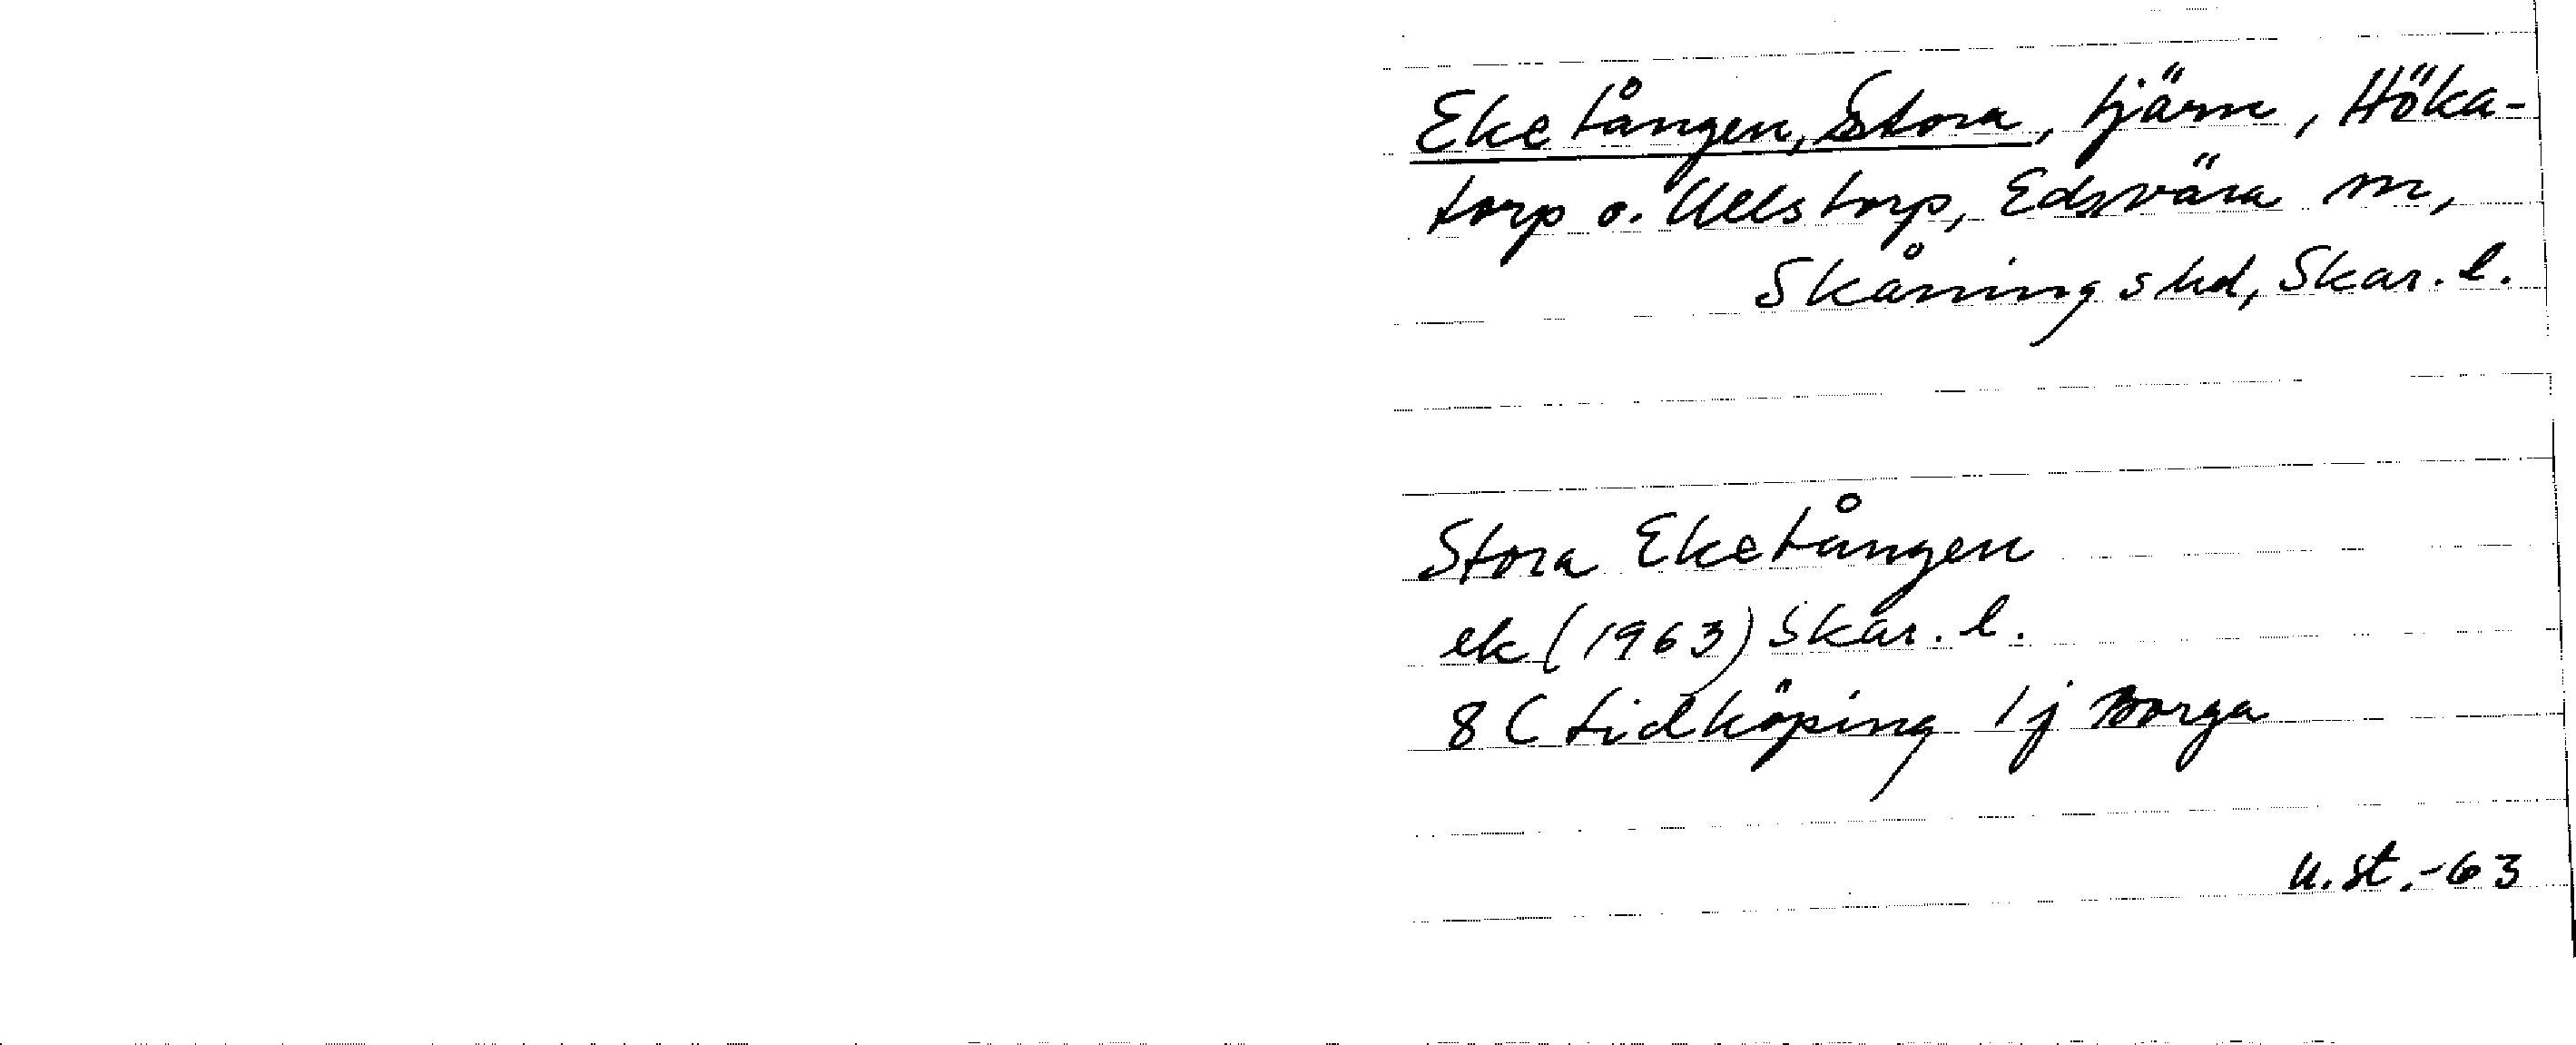 Eketången, Stora, tjärn, Höka-
torp o. Ullstorp, Edsvära sn,
Skånings hd, Skar. l.
Stora Eketången
ek (1963) Skar. l.
8 C Lidköping 1 j Borga
u.st.-63